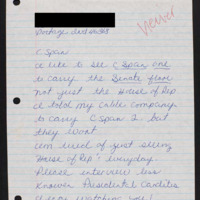 Viewer
Portage, Ind 46368
C Span
I'd like to see C Span one
to carry the Senate floor
not just the House of Rep
I told my cable company
to carry C Span 2. but
they wont
im tired of just seeing
House of Rep! everyday.
Please interview less
known Presidential Candites
watching you!